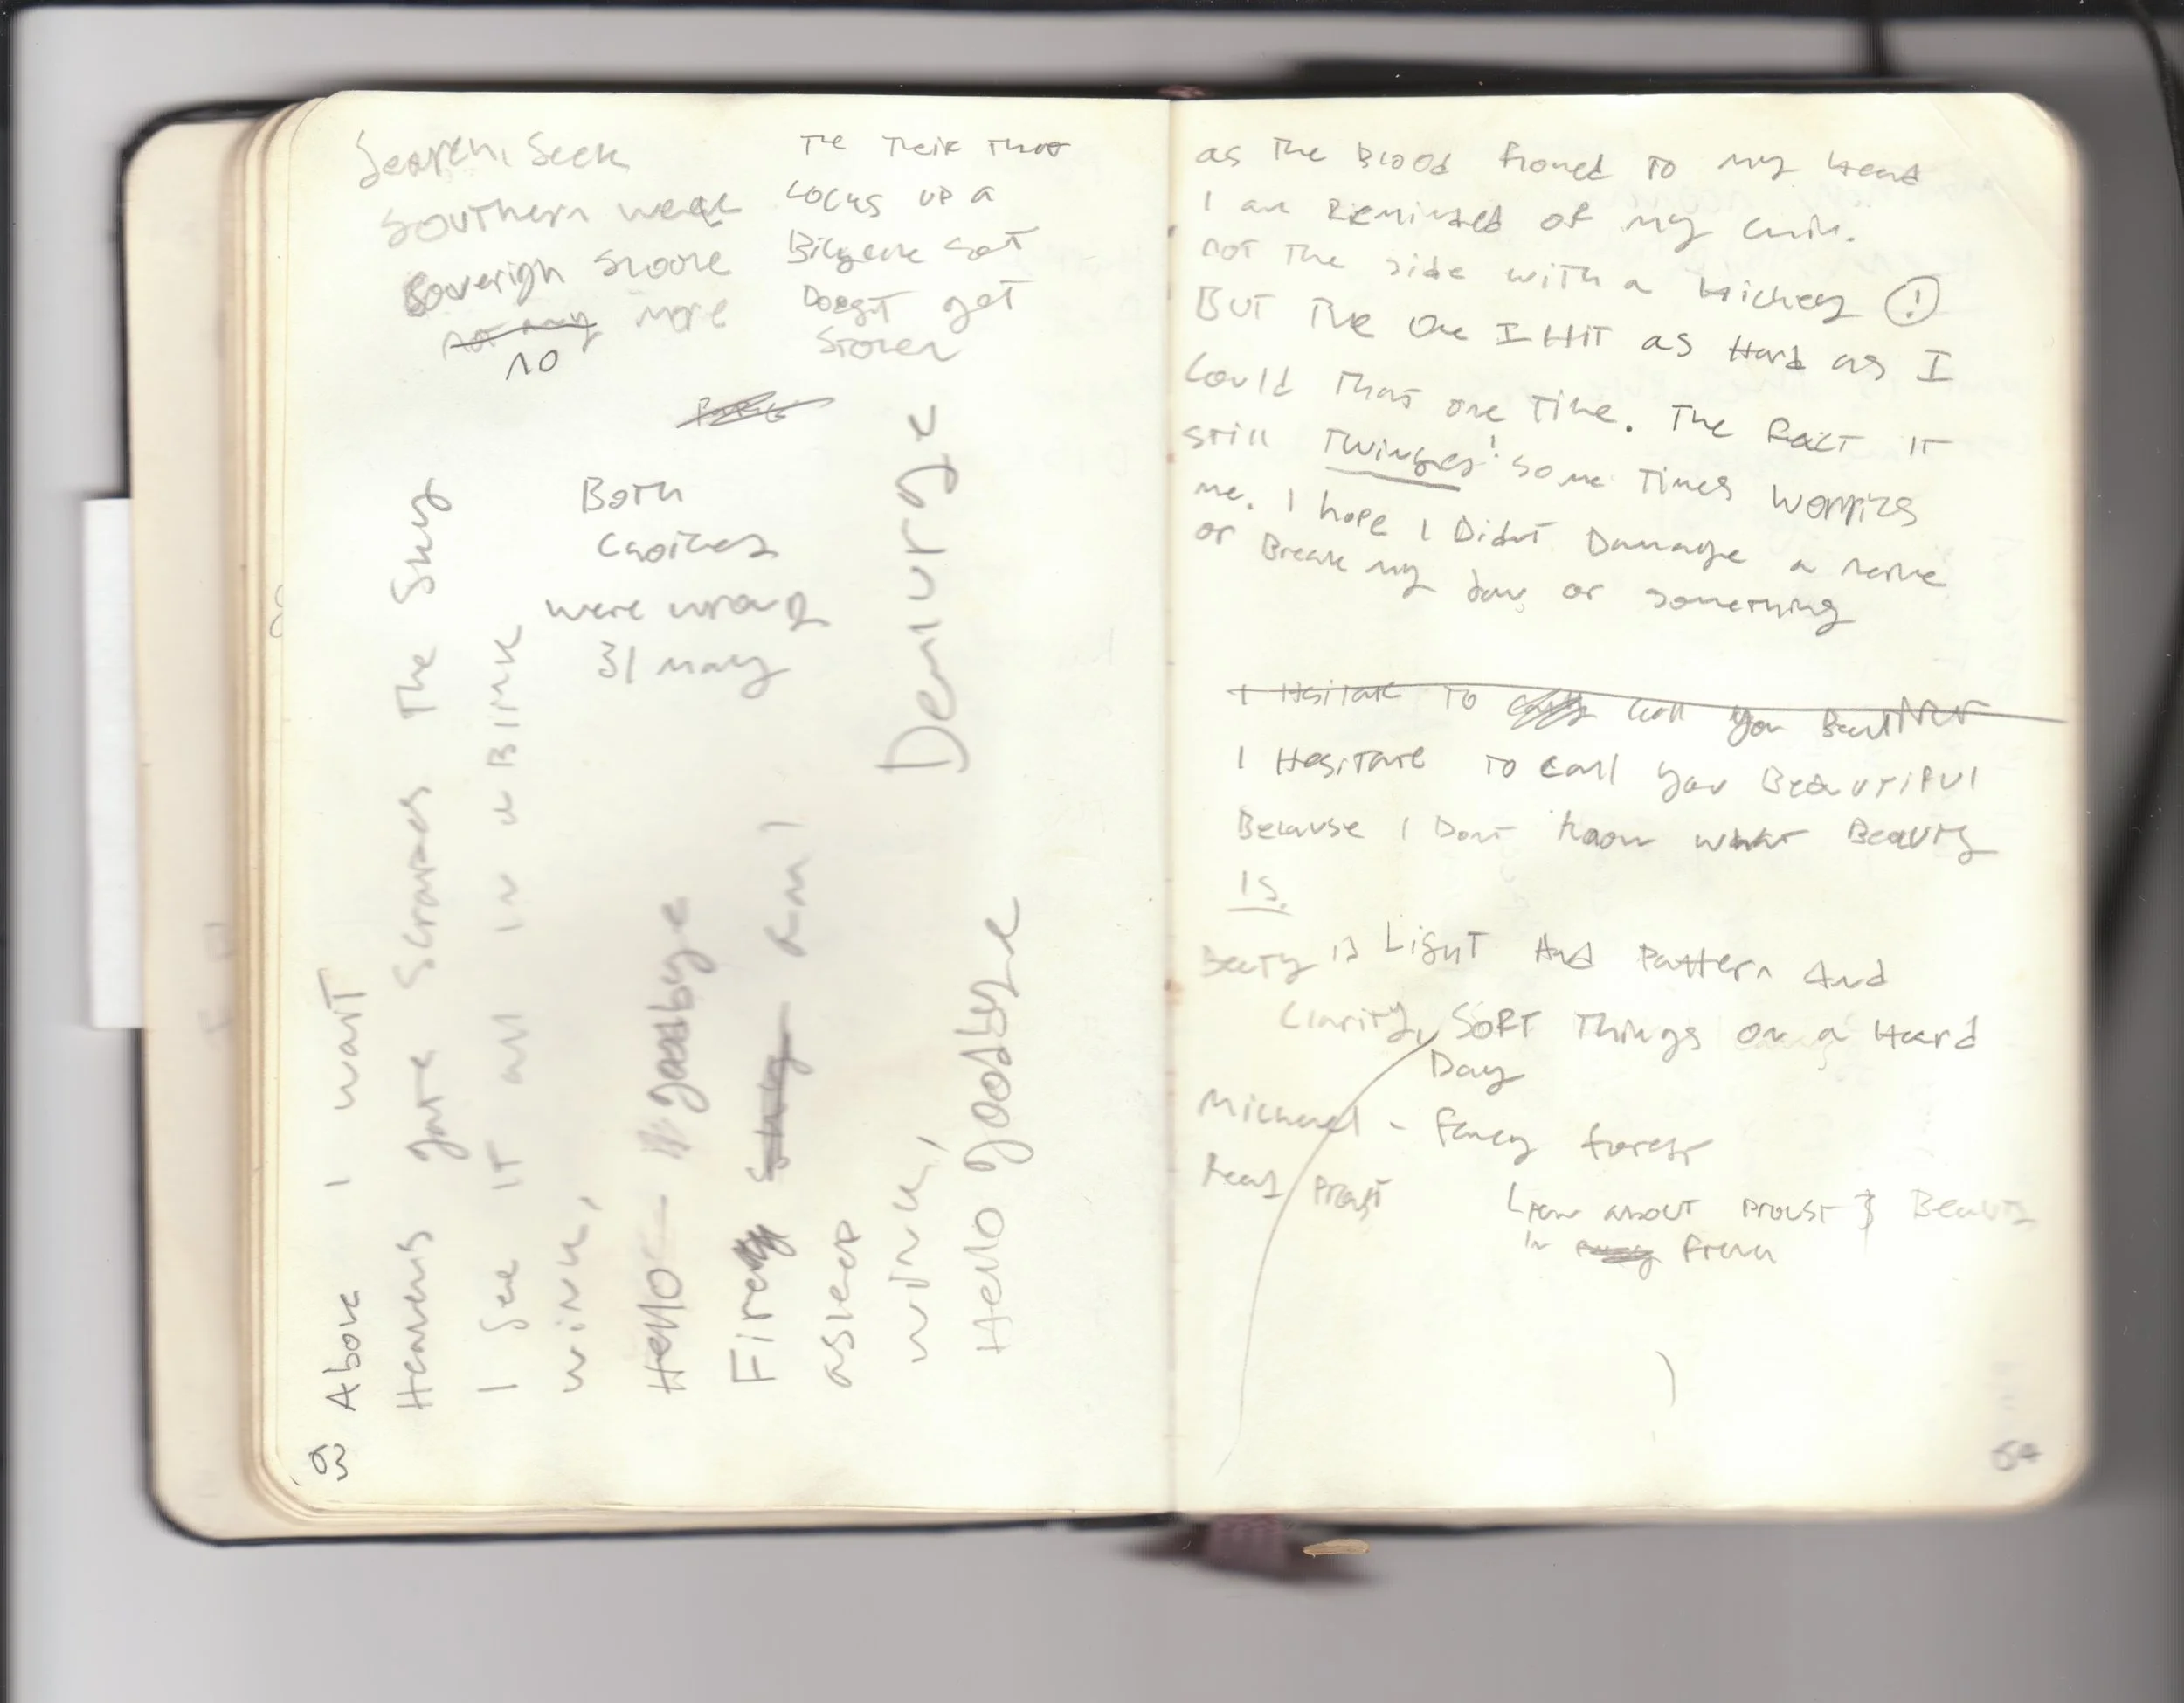 Search, Seek
Southern week
Soverign snore
not any more
no
The Theif That
Locks up a
Bicycle
Doesnt get
Stolen
Both
Choices
were wrong
31 may
Demiurge
Above I want
Heavens gate Scrapes The Sky
I See IT all In a Blink
wink,
Hello goodbye
Firey am I
asleep
wink,
Hello goodbye
63
as The Blood flowed To my Head
I am Reminded of my chin.
not The side with a Hickey (!)
BUT The One I HIT as Hard as I
Could That one Time. The Fact IT
still Twinges! Some Times Worries
me. I hope I Didnt Damage a nerve
or Break my Jaw or something
I Hesitate To call you
I Hesitate To call you Beautiful
Because I Dont know what Beauty
IS.
Beuty is Light And Pattern And
Clarity, SORT Things on a Hard
Day
Michael - Fancy forest
Read Proust
about Proust & Beauty
in
64